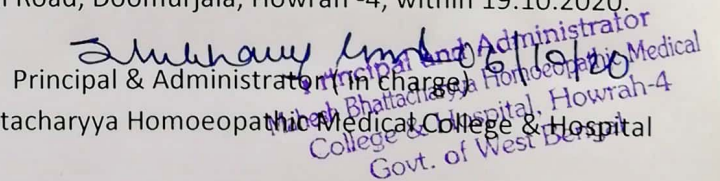 Road, Doomurjala, Howrah -4, within 19.10.2020.
06/10/20
Principal & Administrator (in charge)
tacharyya Homoeopathic Medical College & Hospital
Principal and Administrator
Mahesh Bhattacharyya Homoeopathic Medical
College & Hospital, Howrah-4
Govt. of West Bengal